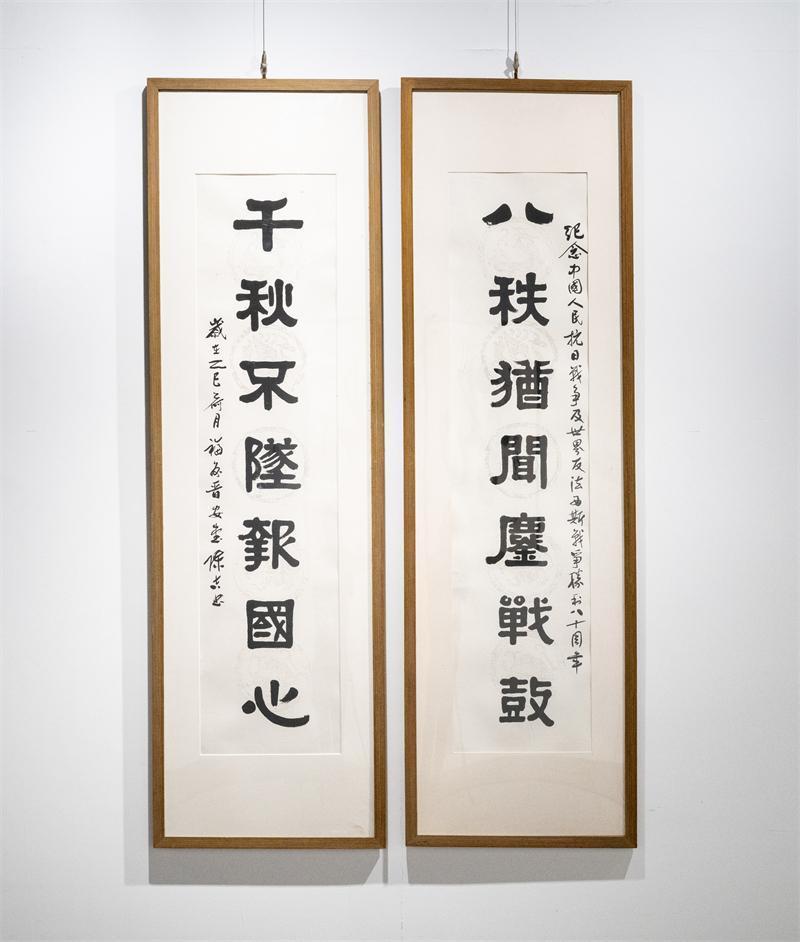 紀念中國人民抗日戰争及世界反法西斯戰爭勝利八十周年
八秩猶聞鏖戰鼓
千秋不墜報國心
歲在乙巳荷月福州晉安金陳志忠